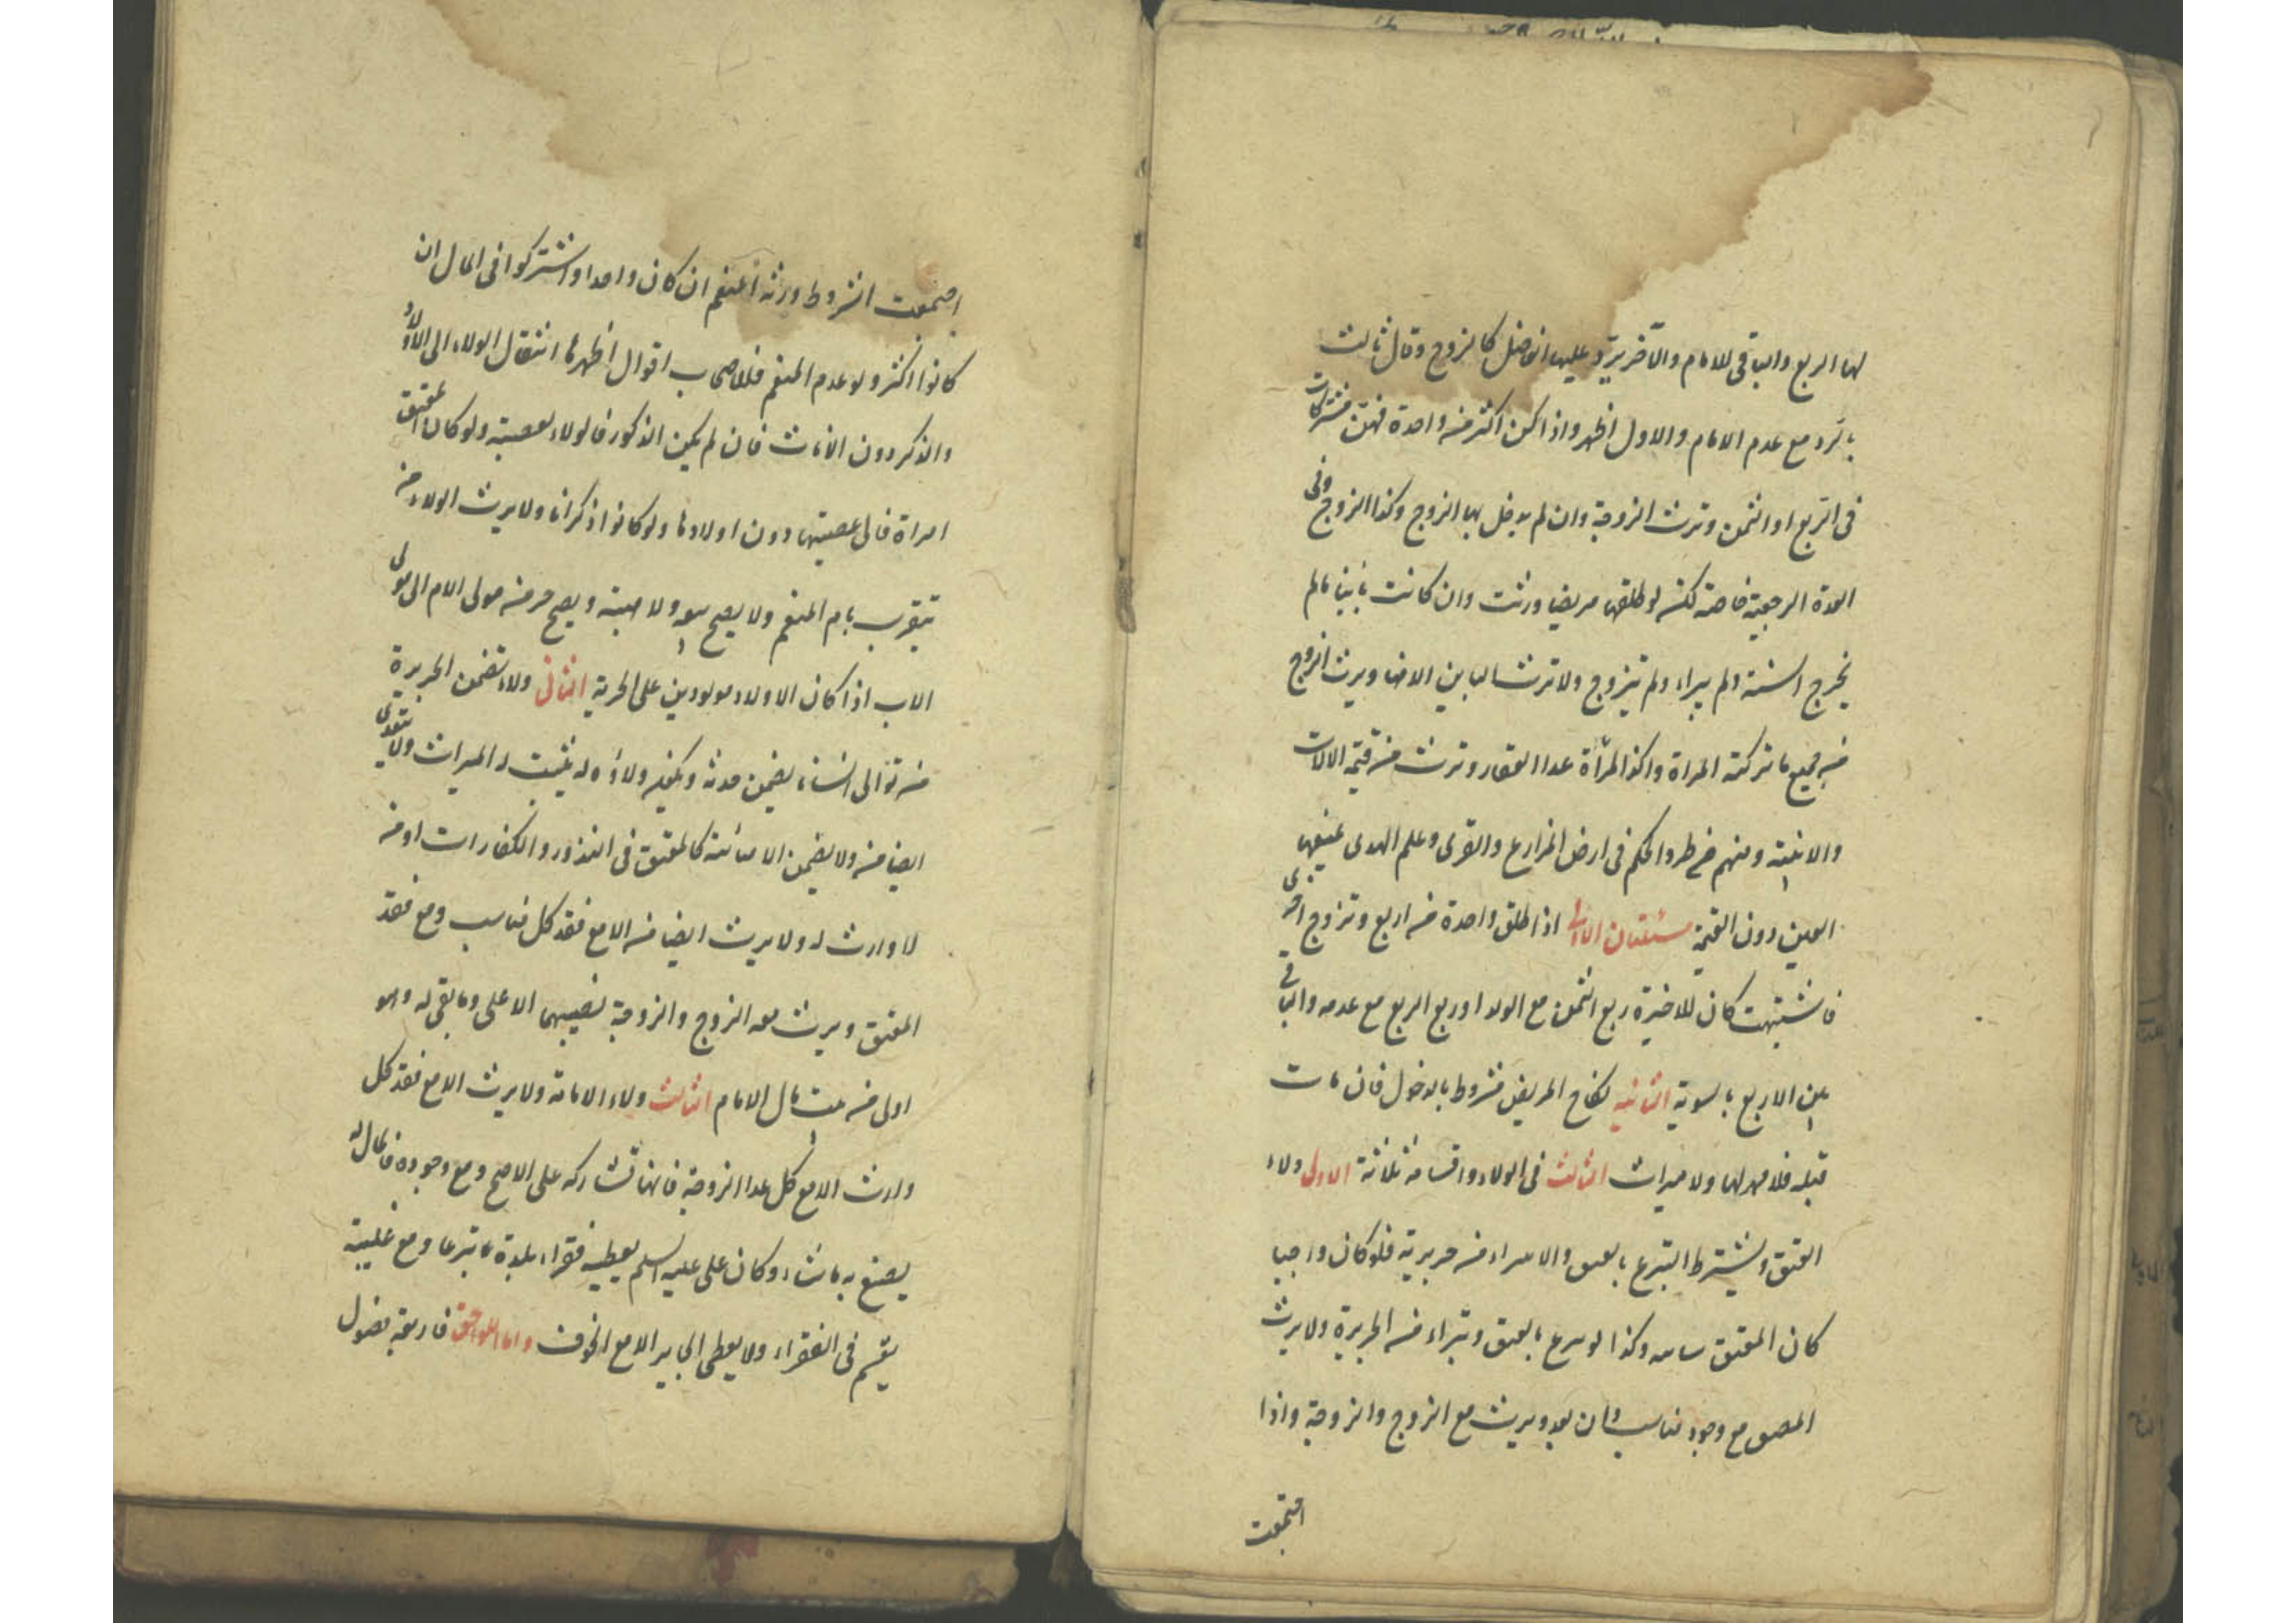 لها الربع والباقي للامام والآخر يرد عليها الفاضل كالزوج وقال ثالث
بالرد مع عدم الامام والاول اظهر واذا كن اكثر من واحدة فهن مشتركات
في الربع او الثمن وترث الزوجة وان لم يدخل بها الزوج وكذا الزوج وفي
العدة الرجعية خاصة لكن لو طلقها مريضا ورثت وان كانت باينا مالم
يخرج السنة ولم يبراء ولم تتزوج ولا ترث الباين الا هنا ويرث الزوج
من جميع ما تركته المراة وكذا المرأة عدا العقار وترث من قيمة الالات
والابنية ومنهم من طرد الحكم في ارض المزارع والقرى وعلم الهدى يمنعها
العين دون القيمة مسئلتان الاولى اذا طلق واحدة من اربع وتزوج اخرى
فاشتبهت كان للاخيرة ربع الثمن مع الولد او ربع الربع مع عدمه والباقي
بين الاربع بالسوية الثانية نكاح المريض مشروط بالدخول فان مات
قبله فلا مهر لها ولا ميراث الثالث في الولاء واقسامه ثلاثة الاول ولاء
العتق ويشترط التبرع بالعتق والا يبراء من جريرته فلو كان واجبا
كان المعتق سايبه وكذا لو تبرع بالعتق وتبراء من الجريرة ولا يرث
المعتق مع وجود مناسب وان بعد ويرث مع الزوج والزوجة واذا
اجتمعت
اجتمعت الشروط ورثه المنعم ان كان واحدا واشتركوا في المال ان
كانوا اكثر ولو عدم المنعم فللاصحاب اقوال اظهرها انتقال الولاء الى الاولاد
والذكر دون الاناث فان لم يكن الذكور فالولاء لعصبته ولو كان المعتق
امراة فالى عصبتها دون اولادها ولو كانوا ذكرانا ولا يرث الولاء من
يتقرب بام المنعم ولا يصح بيعه ولا هبته ويصح جره من مولى الام الى مولى
الاب اذا كان الاولاد مولودين على الحرية الثاني ولاء تضمن الجريرة
من توالى انسانا يضمن حدثه ويكون ولاؤه له يثبت له الميراث ولا يتعدى
ايضا منه ولا يضمن الا سائبة كالمعتق في النذور والكفارات او من
لا وارث له ولا يرث ايضا منه الا مع فقد كل مناسب ومع فقد
المعتق ويرث معه الزوج والزوجة نصيبهما الاعلى وما بقي له وهو
اولى من بيت مال الامام الثالث ولاء الامامة ولا يرث الا مع فقد كل
وارث الا مع كل عدا الزوجة فانها تشاركه على الاصح ومع وجوده فالمال له
يصنع به ما شاء وكان علي عليه السلم يعطيه فقراء بلده تبرعا ومع غيبته
يقسم في الفقراء ولا يعطى الجاير الا مع الخوف واما اللواحق فاربعة فصول